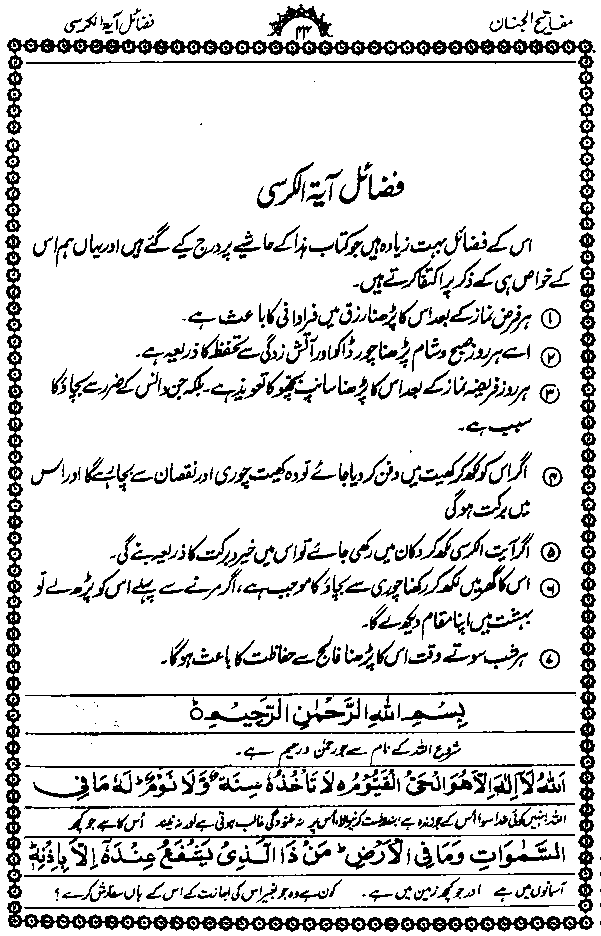 مفاتیح الجنان
۴۳
فضائل آیۃ الکرسی
فضائل آیۃ الکرسی
اس کے فضائل بہت زیادہ ہیں جو کتاب ہذا کے حاشیے پر درج کیے گئے ہیں اور یہاں ہم اس
کے خواص ہی کے ذکر پر اکتفا کرتے ہیں۔
① ہر فرض نماز کے بعد اس کا پڑھنا رزق میں فراوانی کا باعث ہے۔
② اسے ہر روز صبح و شام پڑھنا چور ڈاکو اور آتش زدگی سے تحفظ کا ذریعہ ہے۔
③ ہر روز فریضہ نماز کے بعد اس کا پڑھنا سانپ بچھو کا تعویذ ہے۔ بلکہ جن و انس کے ضرر سے بچاؤ کا
سبب ہے۔
④ اگر اس کو لکھ کر کھیت میں دفن کر دیا جائے تو وہ کھیت چوری اور نقصان سے بچا رہے گا اور اس
میں برکت ہوگی
⑤ اگر آیت الکرسی لکھ کر دکان میں رکھی جائے تو اس میں خیر و برکت کا ذریعہ بنے گی۔
⑥ اس کا گھر میں لکھ کر رکھنا چوری سے بچاؤ کا موجب ہے، اگر مرنے سے پہلے اس کو پڑھ لے تو
بہشت میں اپنا مقام دیکھ لے گا۔
⑦ ہر شب سوتے وقت اس کا پڑھنا فالج سے حفاظت کا باعث ہوگا۔
بِسْمِ اللهِ الرَّحْمٰنِ الرَّحِيْمِ
شروع اللہ کے نام سے جو رحمٰن و رحیم ہے۔
اَللهُ لَآ اِلٰهَ اِلَّا هُوَ اَلْحَيُّ الْقَيُّوْمُ لَا تَأْخُذُهٗ سِنَةٌ وَّلَا نَوْمٌ لَهٗ مَا فِي
اللہ نہیں کوئی خدا سوا اس کے جو زندہ ہے، بندوبست کرنیوالا، اس پر نہ غنودگی غالب ہوتی ہے اور نہ نیند اُس کا ہے جو کچھ
السَّمٰوٰتِ وَمَا فِي الْاَرْضِ مَنْ ذَا الَّذِيْ يَشْفَعُ عِنْدَهٗ اِلَّا بِاِذْنِهٖ
آسمانوں میں ہے اور جو کچھ زمین میں ہے۔ کون ہے وہ جو بغیر اس کی اجازت کے اس کے ہاں سفارش کرے؟